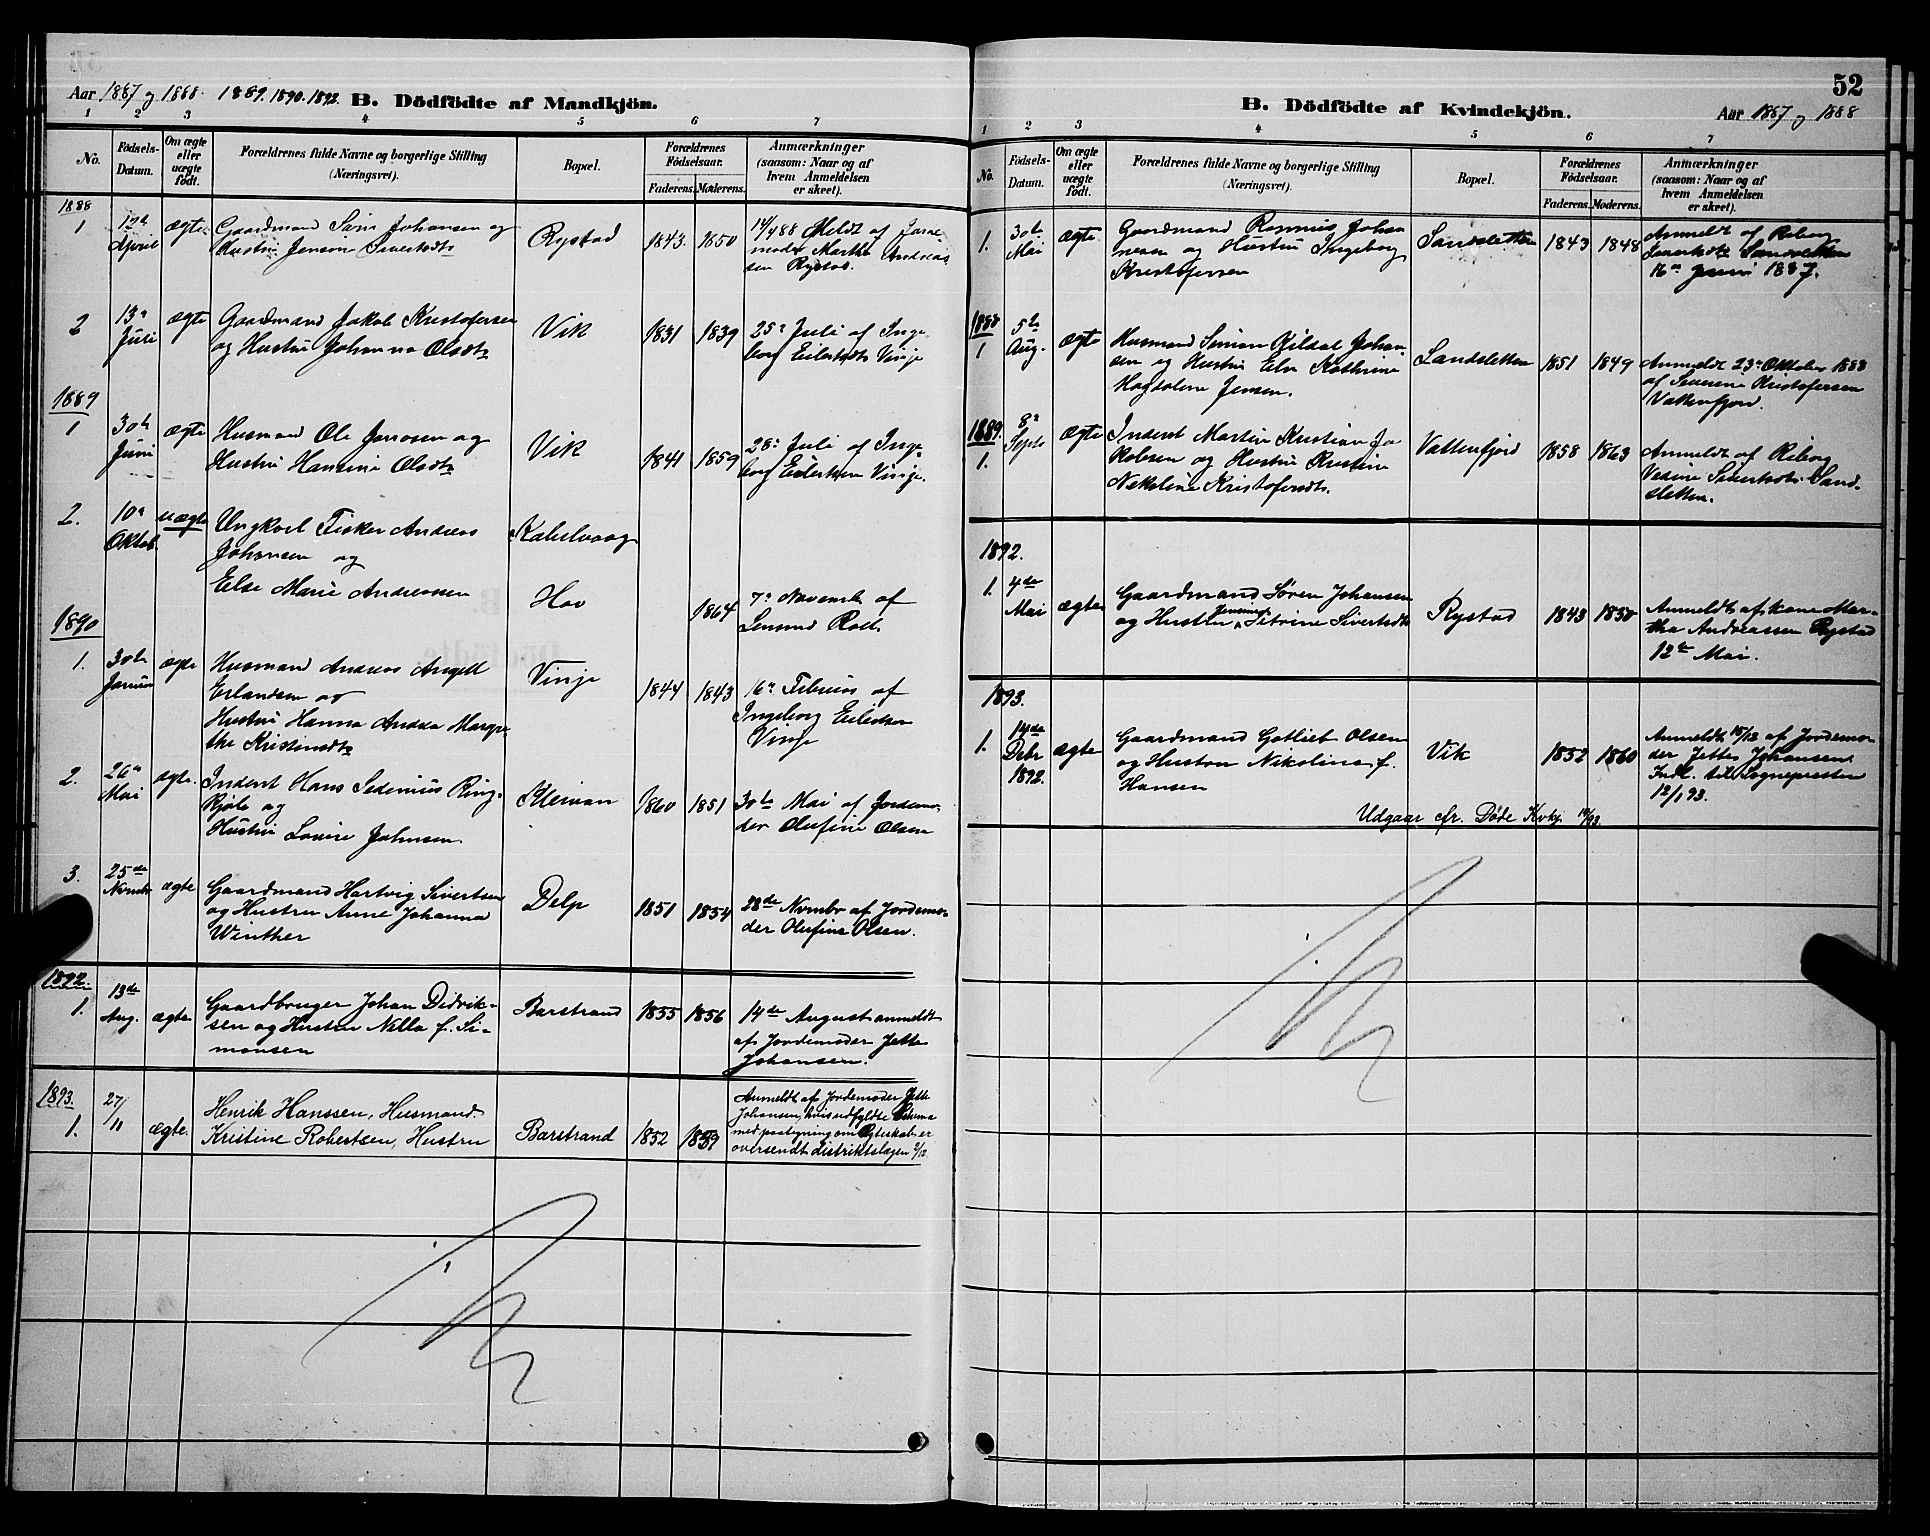 Aar 1887 og 1888. 1889. 1890. 1892. B. Dödfödte af Mandkjön.
1 2 3 4 5 6 7
No.
Födsels-
Datum.
Om ægte
eller
uægte
født.
Forældrenes fulde Navne og borgerlige Stilling
(Næringsvei).
Bopæl.
Forældrenes
Födselsaar.
Faderens. Moderens.
Anmærkninger
(saasom: Naar og af
hvem Anmeldelsen
er skeet).
1888
1 12te April ægte Gaardmand Johansen og
Hustru Sivertsdtr
Rystad 1843. 1850
14/4 88 Meldt af Jorde
moder Martha Andreas
sen Rystad.
2 13de Juli ægte Gaardmand Jakob Kristofersen
og Hustru Johanna Olsdtr
Vik 1831 1839
25de Juli af Inge
borg Eilertsdtr Vinje
1889
1 30te Juni ægte Husmand Ole Jonasen og
Hustru Hansine Olsdtr
Vik 1841 1859
28de Juli af Inge
borg Eilertsen Vinje.
2. 10de Oktob. uægte Ungkarl Fisker Andreas
Johansen og
Else Marie Andreassen
Kabelvaag
Hov 1864
7de November af
1890
1. 30te Januar ægte Husmand Andreas Angell
Erlandsen og
Hustru Hanna Andrea Margre
the Kristensdtr
Vinje 1844 1843
16de Februar af
Ingeborg Eilertsen
Vinje
2. 26de Mai ægte. Inderst Hans Sedenius Ring-
og
Hustru Lovise Johnsen.
Kleivan 1860 1851
30te Mai af Jordemo-
der Olufine Olsen
3. 25de Novmbr ægte Gaardmand Hartvig Sivertsen
og Hustru Anne Johanna
Winther
Delp 1851 1854
28de Novmbr af Jordemo-
der Olufine Olsen.
1892.
1. 13de Aug. ægte Gaardbruger Johan Didrik-
sen og Hustru Nilla f. Si-
monsen
Barstrand 1855 1856
14de August anmeldt
af Jordemoder Jette
Johansen.
1893.
1. 27/11 ægte. Henrik Hanssen, Husmand
Kristine Robertsen, Hustru
Barstrand 1852 1859
Anmeldt af Jordemoder Jette
Johansen, hvis udfyldte Skema
med paategning om Ægteskab er
oversendt distriktslægen 2/12
52
B. Dödfödte af Kvindekjön. Aar 1887 og 1888
1 2 3 4 5 6 7
No.
Födsels-
Datum.
Om ægte
eller
uægte
født.
Forældrenes fulde Navne og borgerlige Stilling
(Næringsvei).
Bopæl.
Forældrenes
Födselsaar.
Faderens. Moderens.
Anmærkninger
(saasom: Naar og af
hvem Anmeldelsen
er skeet).
1. 30te Mai ægte Gaardmand Rasmus Johan
nesen og Hustru Ingeborg
Kristofersen
Sandsletten 1843 1848
Anmeldt af Riborg
Sivertsdtr Sandsletten
16de Juni 1887.
1888
1 5te Aug. ægte Husmand Simon Kildal Johan-
sen og Hustru Elen Kathrine
Magdalena Jensen.
Sandsletten 1851 1849
Anmeldt 23de Oktober 1888
af Severine Kristofersen
Vatterfjord.
1889.
1. 8de Septr ægte Inderst Martin Kristian Ja
kobsen og Hustru Kristine
Nikoline Kristofersdtr.
Vatterfjord 1858 1863
Anmeldt af Riborg
Vesine Sivertsdtr Sand-
sletten.
1892.
1. 4de Mai ægte Gaardmand Søren Johansen
og Hustru Jensine Petrine Sivertsdtr
Rystad 1843 1850
Anmeldt af kone Mar-
tha Andreassen Rystad
12te Mai.
1893.
1. 14de Debr 1892. ægte Gaardmand Gotlieb Olsen
og Hustru Nikolina f.
Hansen
Vik 1852 1860
Anmeldt 15/12 af Jordemo-
der Jette Johansen
Indl. til Sognepresten
12/1 93.
Udgaar cfr. Døde Kvkj.